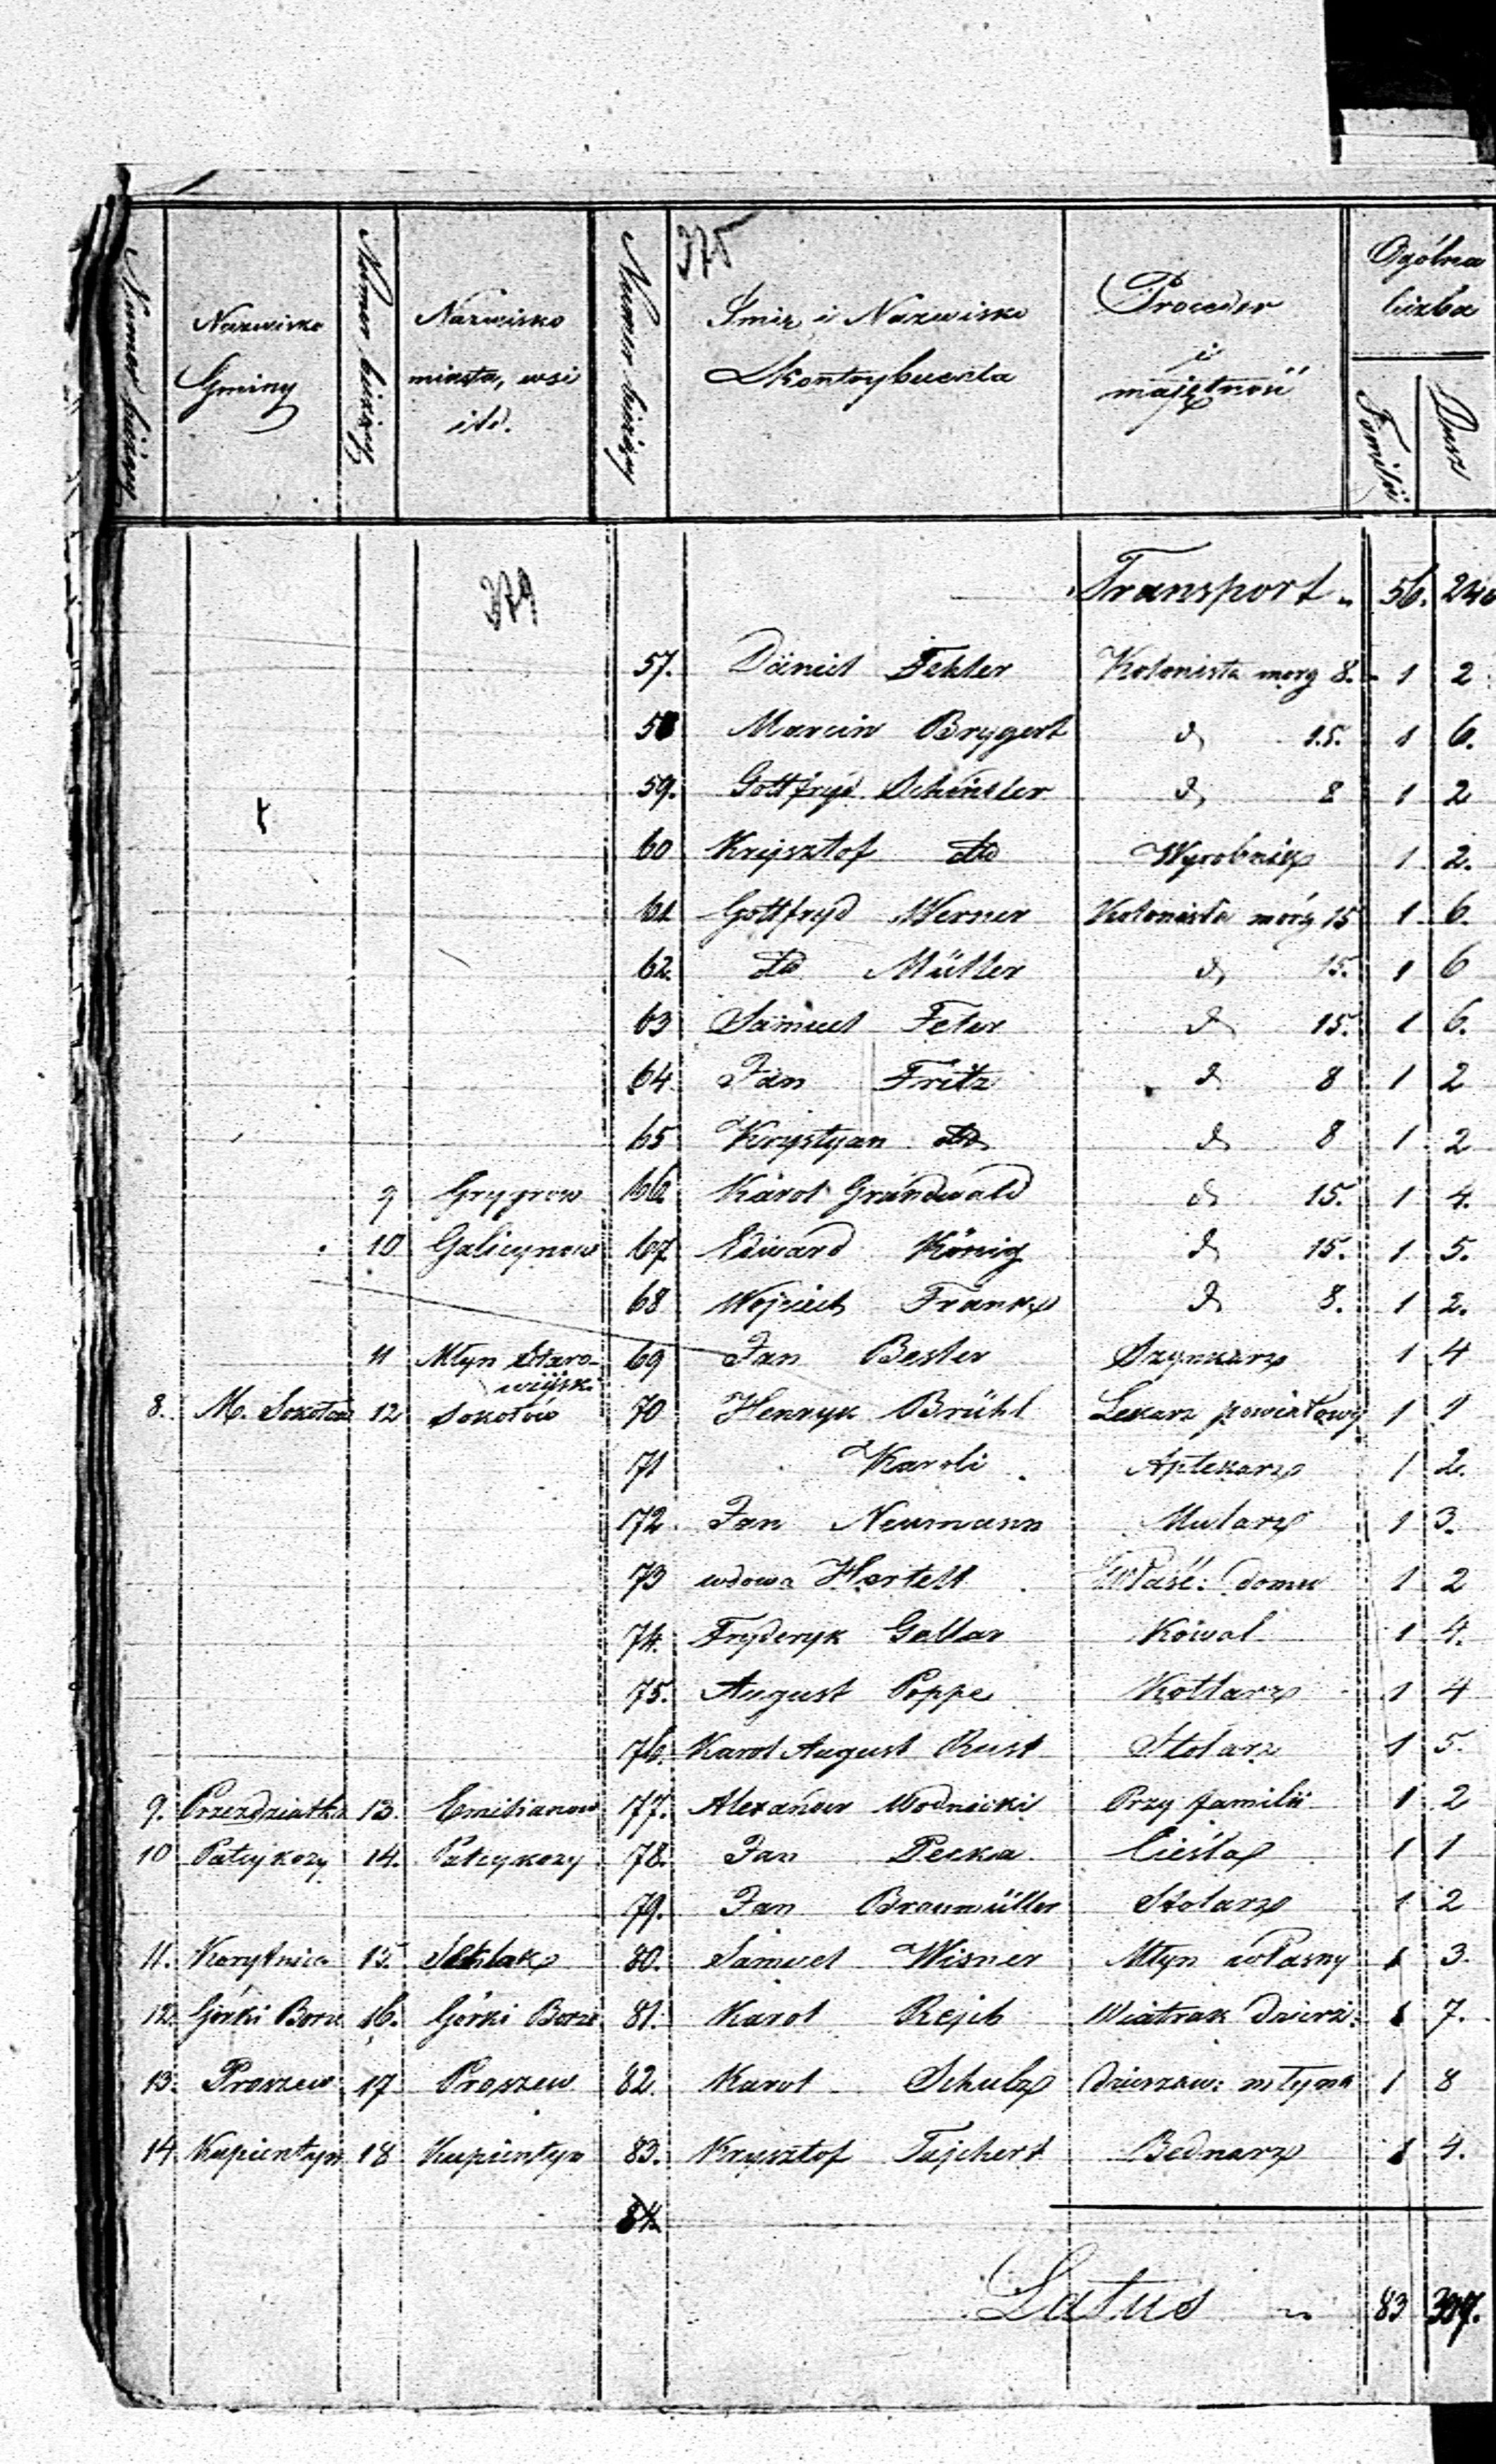 375
Numer bieżący
Nazwisko Gminy
Numer bieżący
Nazwisko miasta, wsi itd.
Numer bieżący
Imię i Nazwisko Kontrybuenta
Proceder i majętność
Ogólna liczba
Familii
Dusz
379
Transport 56. 240
57. Daniel Fehler Kolonista morg 8. 1 2
58 Marcin Brygert d 15. 1 6.
59. Gottfryd Schindler d 8 1 2
60 Krysztof dto Wyrobnik 1 2.
61 Gottfryd Werner Kolonista mórg 15 1 6.
62. dto Müller d 15. 1 6
63 Samuel Feter d 15. 1 6.
64. Jan Fritz d 8 1 2
65 Krystyan dto d 8 1 2
9 Grygrow 66. Karol Gründwald d 15. 1 4.
10 Galicynow 67 Edward König d 15. 1 5.
68 Wojciech Frank d 8. 1 2.
11 Młyn Staro- 69 Jan Bester Szynkarz 1 4
wiejski
8. M. Sokołow 12 Sokołów 70 Henryk Brühl Lekarz powiatowy 1 1
71 Karoli Aptekarz 1 2.
72. Jan Neumann Mularz 1 3.
73 wdowa Hertell Właść: domu 1 2
74. Fryderyk Gellar Kowal 1 4.
75. August Poppe Kotlarz 1 4
76. Karol August Rust Stolarz 1 5.
9. Przezdziatka 13. Emilianow 77. Alexander Wodnicki Przy familii 1 2
10 Patrykozy 14. Patrykozy 78. Jan Pecka Cieśla 1 1
79. Jan Braunmüller Stolarz 1 2
11. Korytnica 15. 80. Samuel Wisner Młyn własny 1 3.
12. Górki Borze 16. Górki Borze 81. Karol Rejch Wiatrak dzierż: 1 7.
13. Proszew 17 Proszew 82. Karol Schulz Dzierzaw: młyna 1 8
14 Kupientyn 18 Kupientyn 83. Krysztof Tajchert Bednarz 1 4.
84.
Latus 83 337.